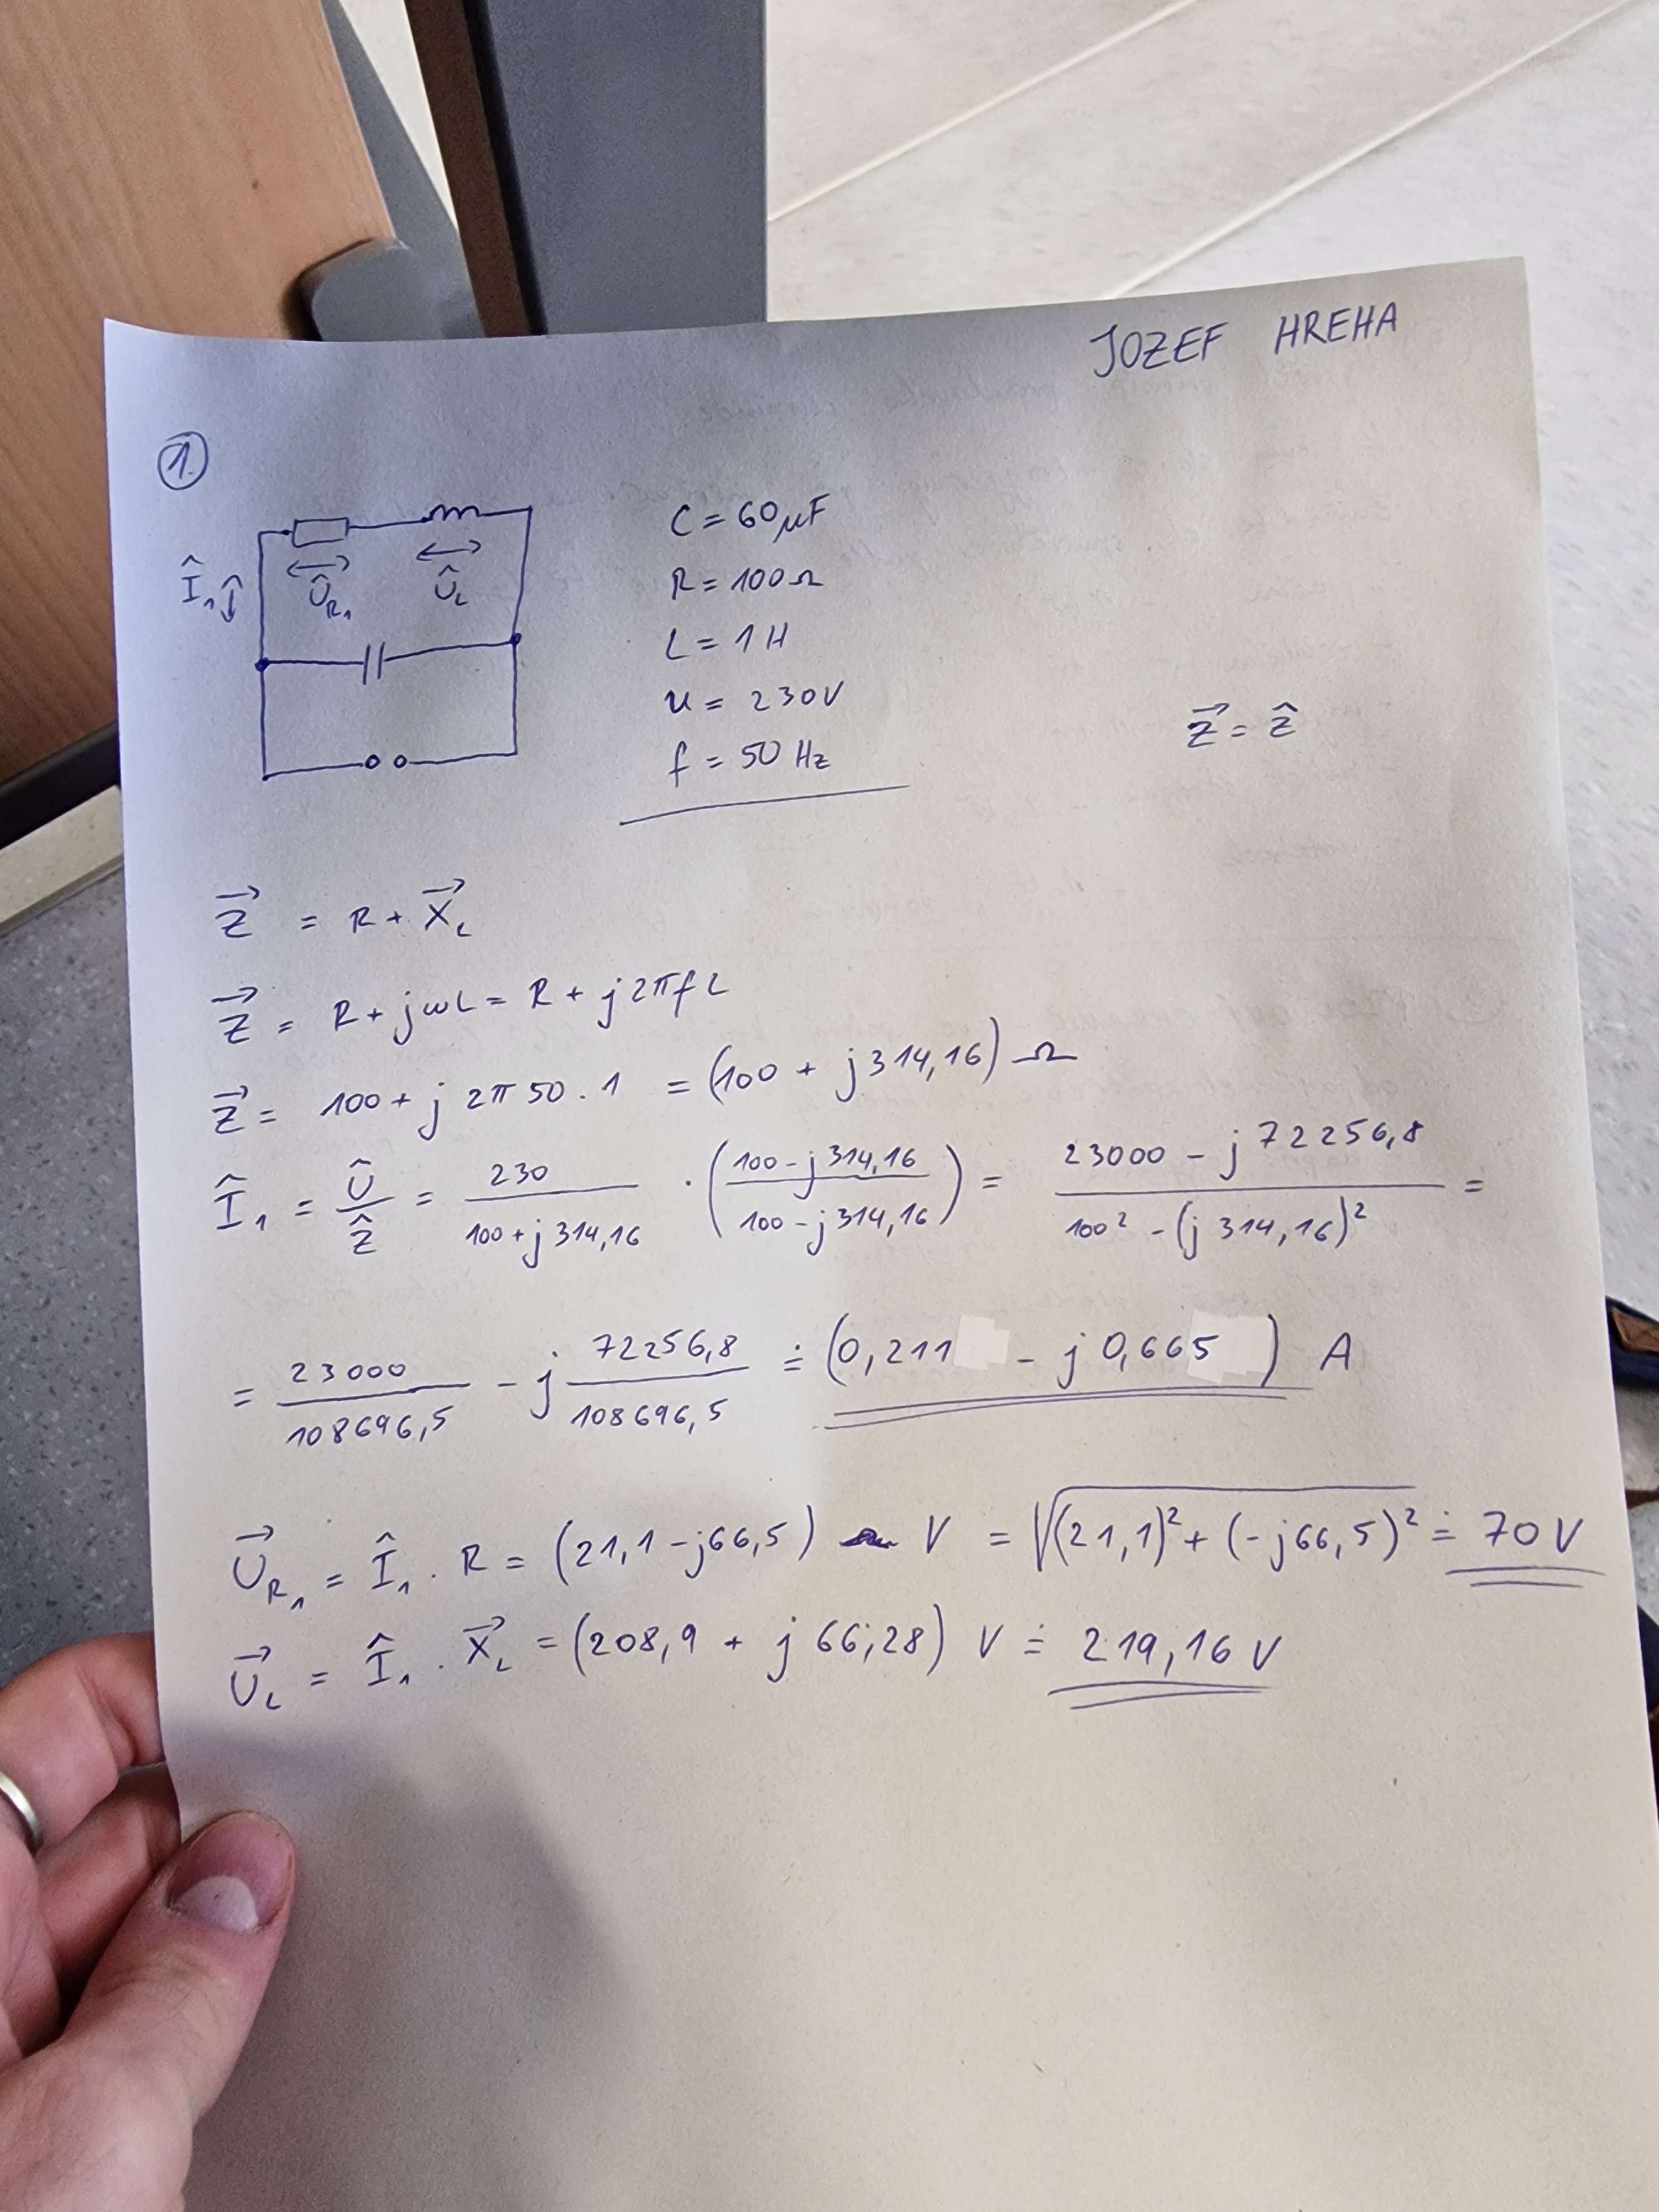 JOZEF HREHA
1.
C = 60μF
R = 100Ω
L = 1H
u = 230V
f = 50 Hz
Î₁ Û_R₁ Û_L
Z⃗ = Ẑ
Z⃗ = R + X⃗_L
Z⃗ = R + jωL = R + j2πfL
Z⃗ = 100 + j 2π50.1 = (100 + j314,16) Ω
Î₁ = Û/Ẑ = 230/(100+j314,16) · ((100-j314,16)/(100-j314,16)) = (23000 - j72256,8)/(100² - (j 314,16)²) =
= 23000/108696,5 - j 72256,8/108696,5 ≐ (0,211 - j 0,665) A
U⃗_R₁ = Î₁ . R = (21,1 - j66,5) V = √((21,1)² + (-j66,5)²) ≐ 70V
U⃗_L = Î₁ . X⃗_L = (208,9 + j 66,28) V ≐ 219,16 V